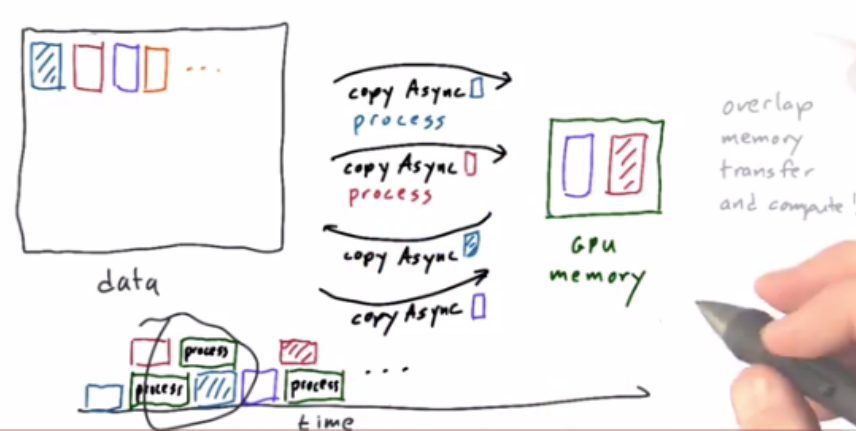 copy Async
process
copy Async
process
copy Async
copy Async
data
GPU
memory
overlap
memory
transfer
and compute!
process
process
process
time